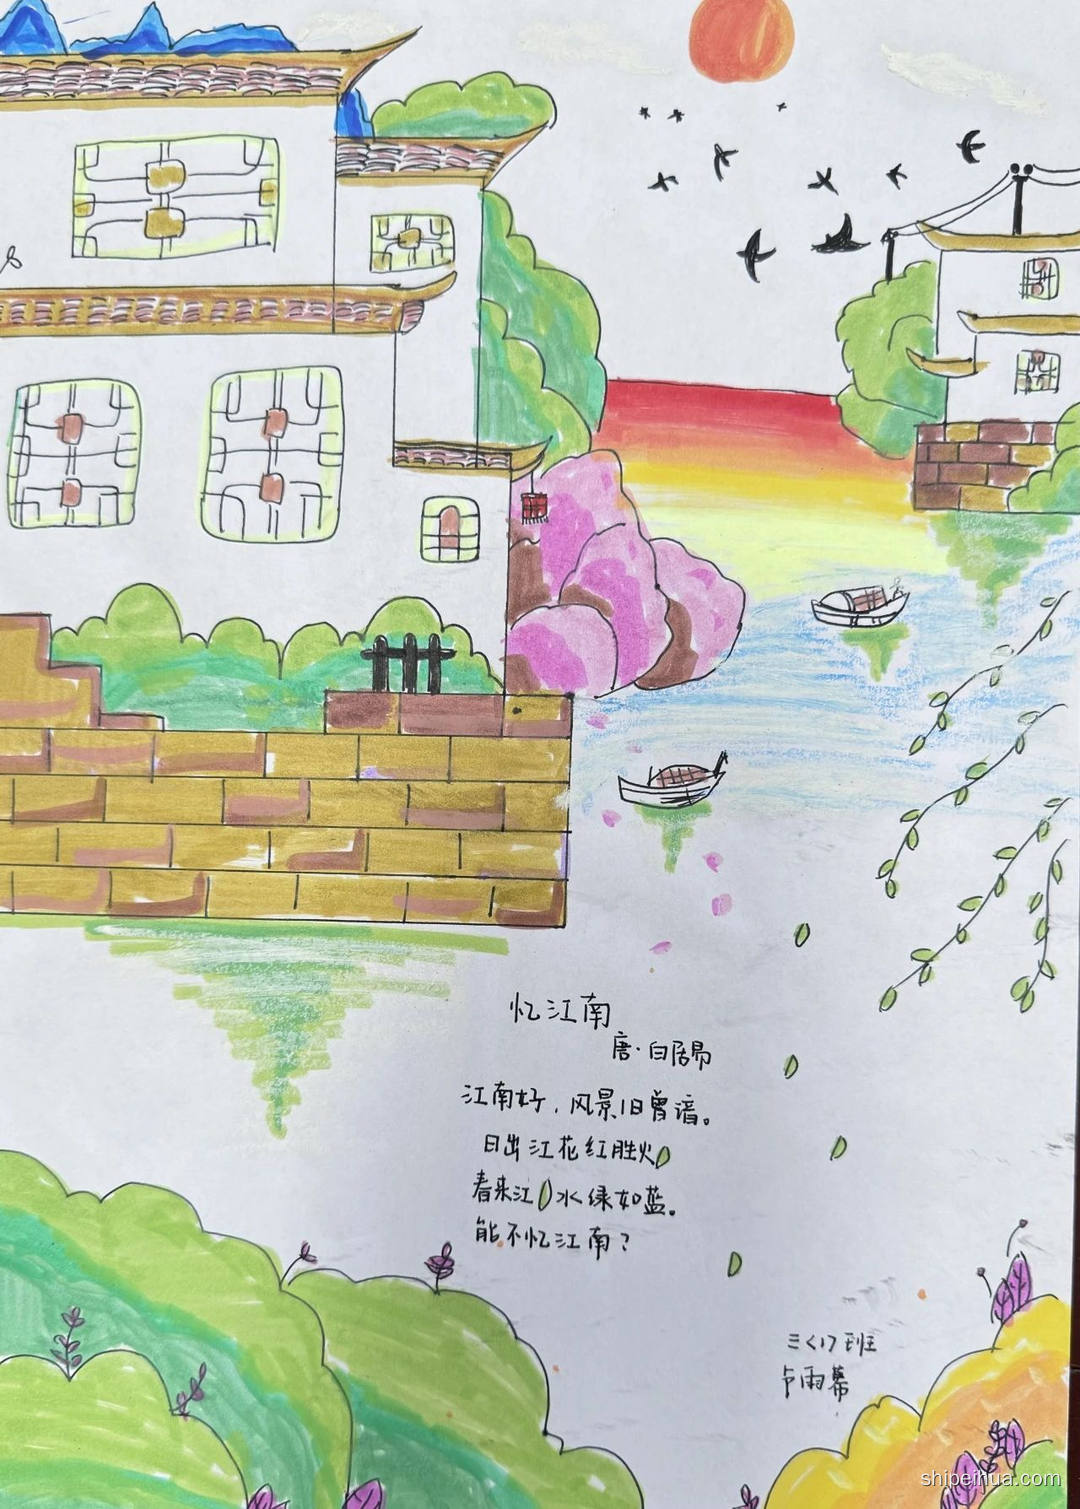 忆江南
唐·白居易
江南好，风景旧曾谙。
日出江花红胜火
春来江水绿如蓝。
能不忆江南？
三<17班
卢雨幕
shipeihua.com